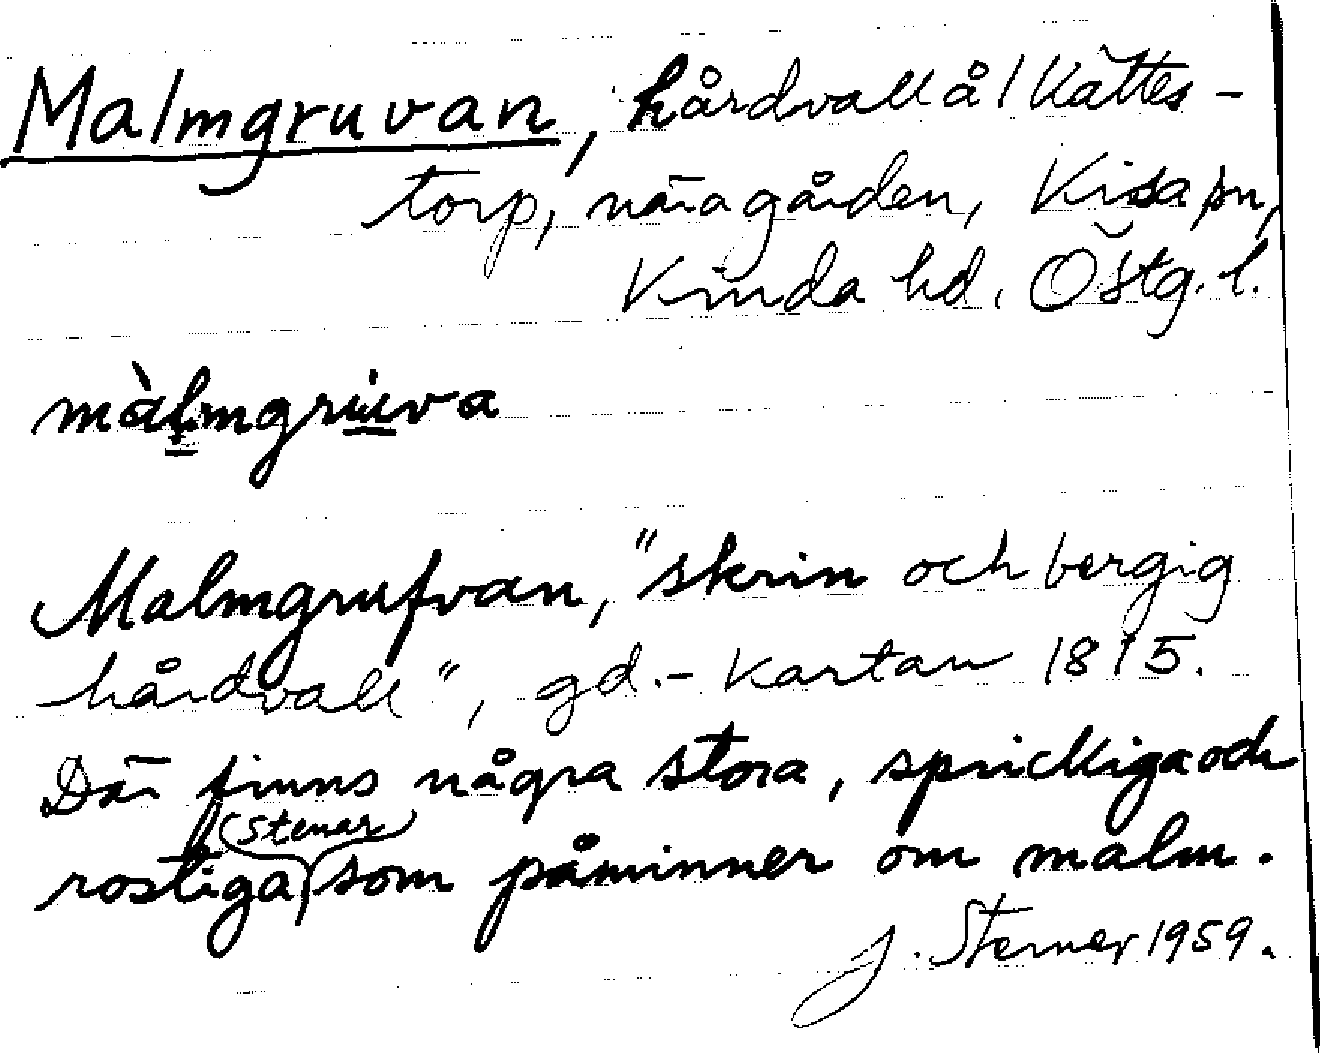 Malmgruvan, hårdvall å/ Kättes-
torp, nära gården, Kisa sn,
Kinda hd. Östg. l.
màlmgruva
Malmgrufvan, "skrin och bergig
hårdvall", gd.- kartan 1815.
Där finns några stora, sprickiga och
rostiga stenar som påminner om malm.
J. Sterner 1959.